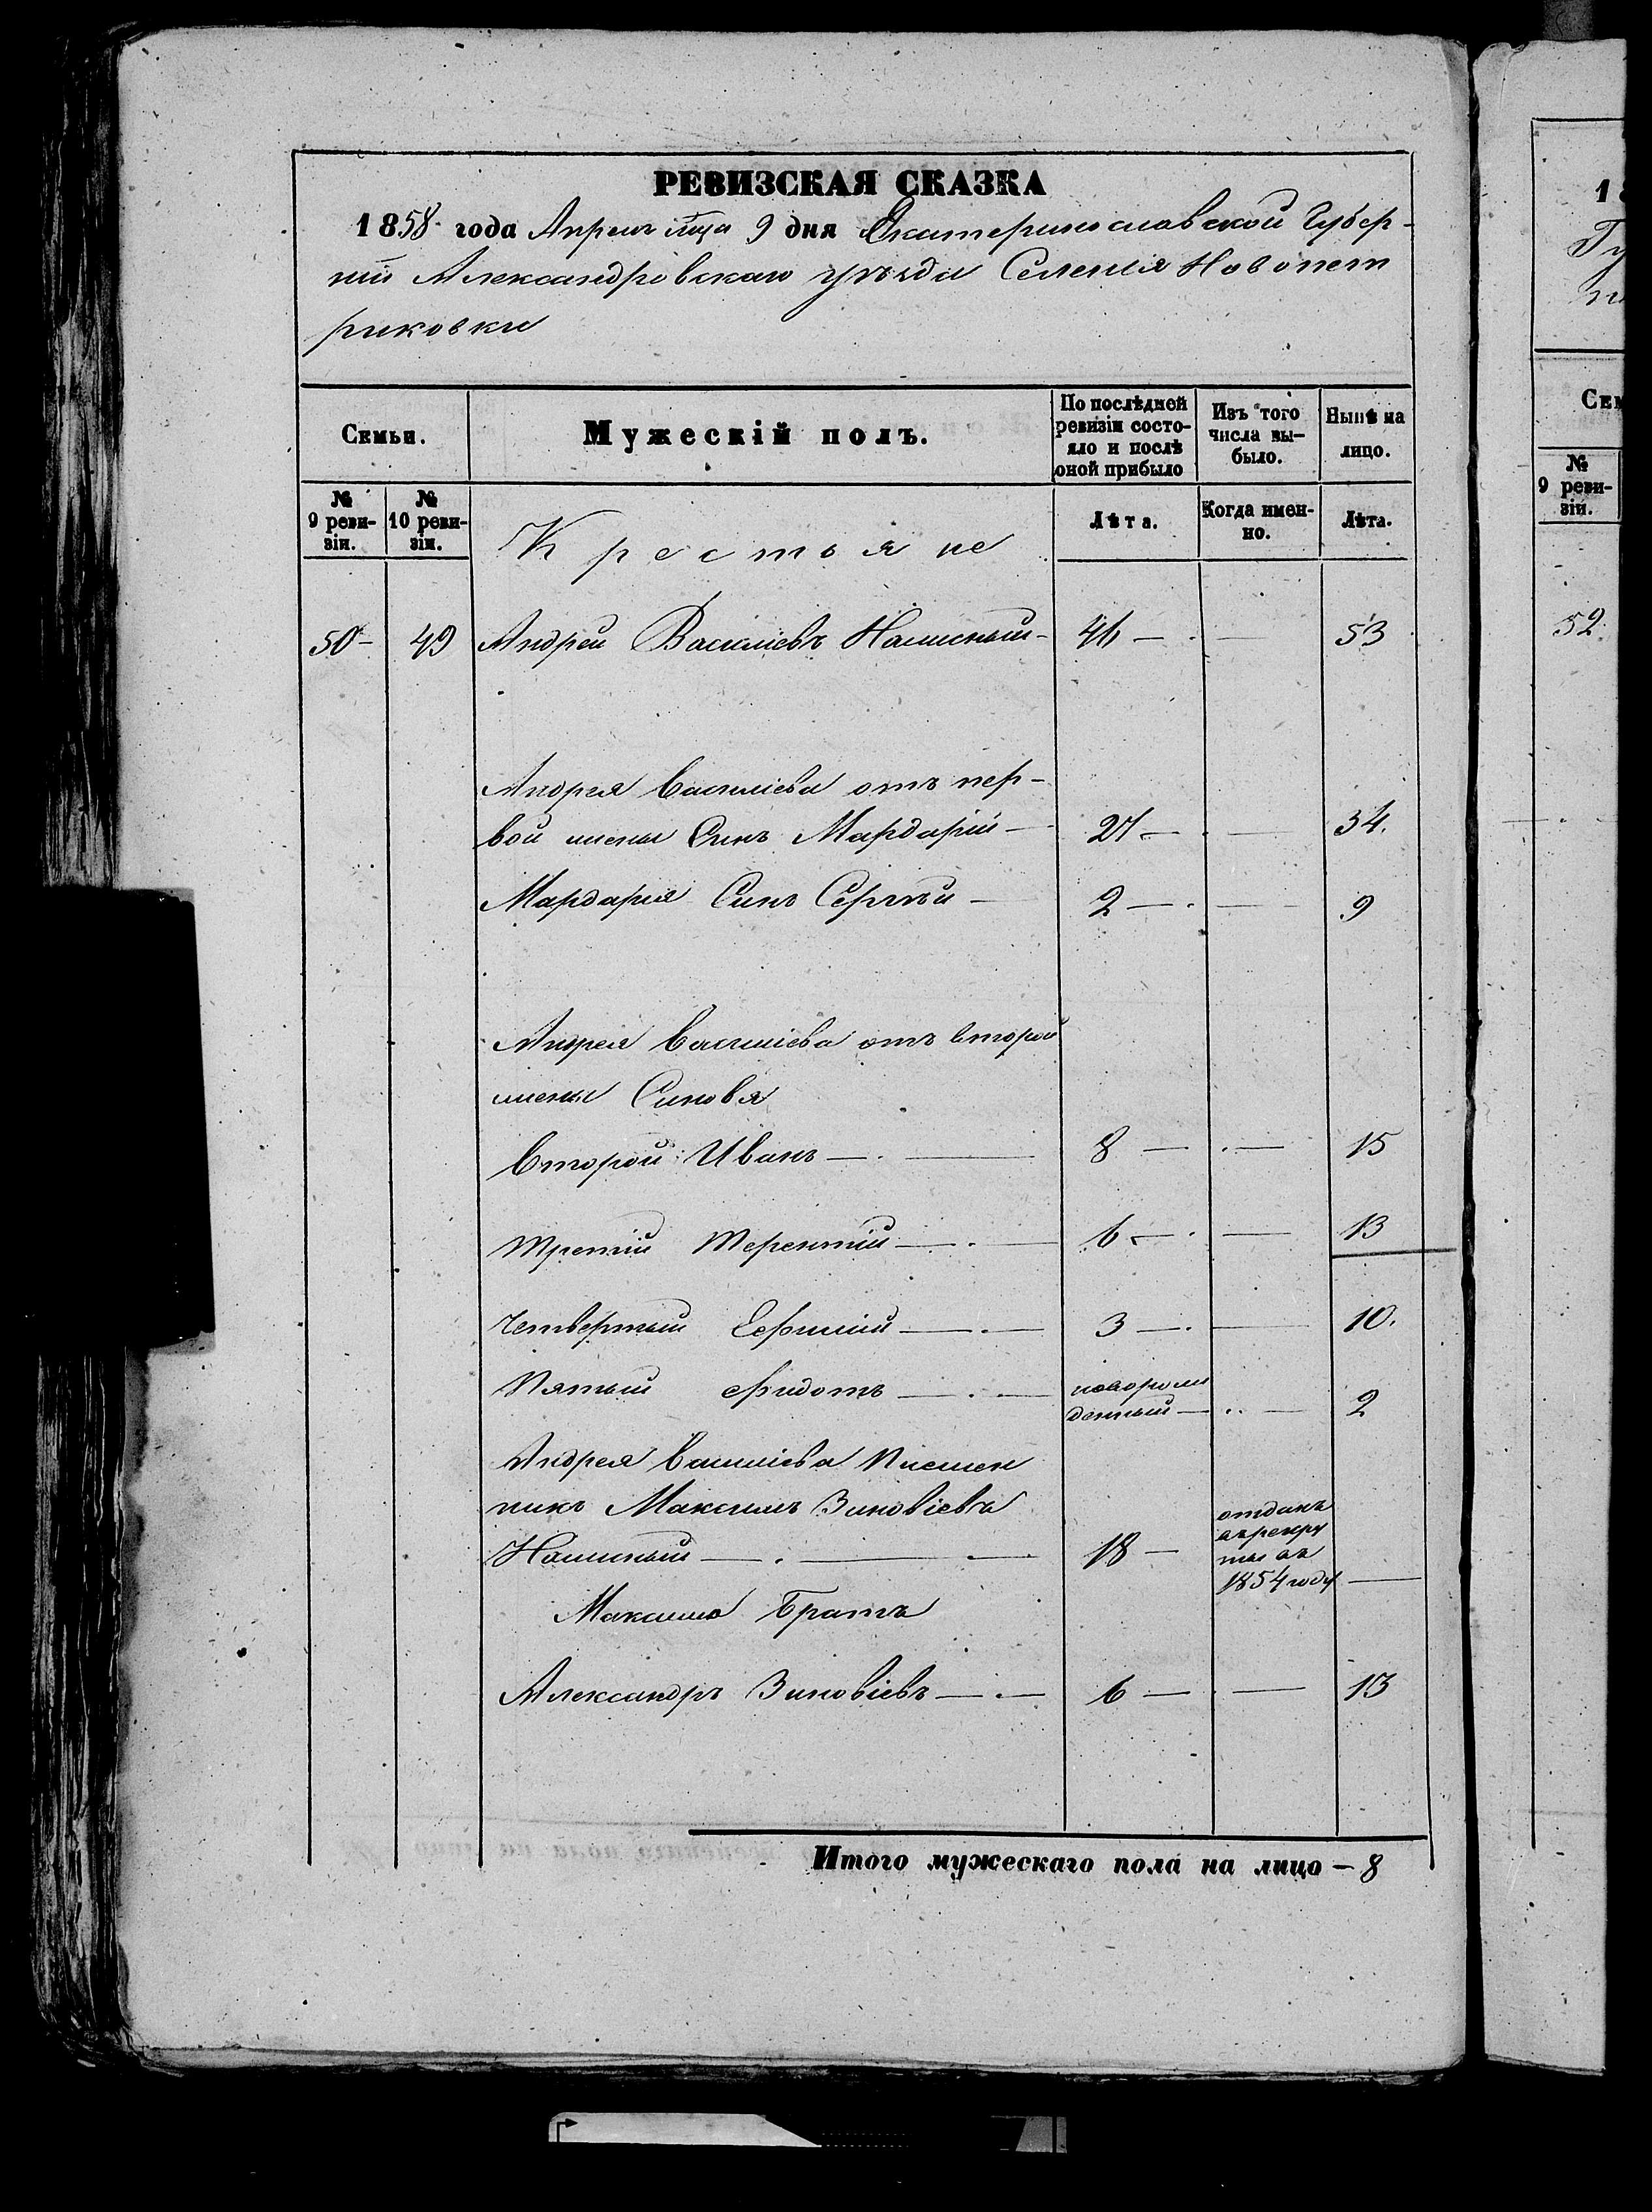 РЕВИЗСКАЯ СКАЗКА
1858 года Апреля мца 9 дня Екатеринославской Губер-
ніи Александровскаго уѣзда Селенія Новопет
риковки
Семьи.
Мужескій полъ.
По послѣдней ревизіи состояло и послѣ оной прибыло
Изъ того числа выбыло.
Нынѣ на лицо.
№ 9 ревизіи.
№ 10 ревизіи.
Лѣта.
Когда именно.
Лѣта.
Крестьяне
50 - 49 Андрей Василіевъ 46 — 53
Андрея Василіева отъ пер-
вой жены Синъ Мардарій — 27 — 34.
Мардарія Синъ Сергѣй — 2 — 9
Андрея Василіева отъ второй
жены Синовя
Второй Иванъ — 8 — 15
Третій Терентій — 6 — 13
Четвертый Ефимій — 3 — 10.
Пятый Фидотъ — новорож
денный — 2
Андрея Василіева Племен
никъ Максимъ Зиновіевъ
18 — отданъ
въ рекру
ты въ
1854 году —
Максима Братъ
Александръ Зиновіевъ — 6 — 13
Итого мужескаго пола на лицо — 8
18
Гу
Сем
№ 9 ревизіи.
52.